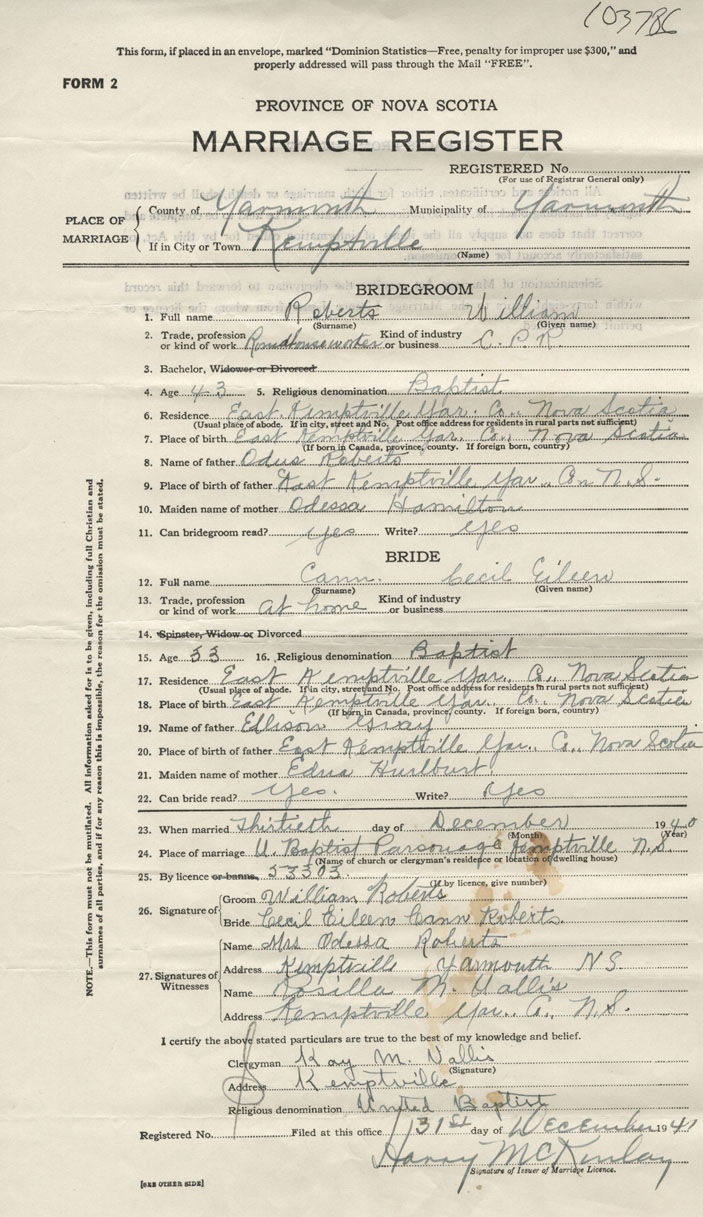 103786
This form, if placed in an envelope, marked "Dominion Statistics—Free, penalty for improper use $300," and
properly addressed will pass through the Mail "FREE".
FORM 2
PROVINCE OF NOVA SCOTIA
MARRIAGE REGISTER
REGISTERED No.
(For use of Registrar General only)
PLACE OF MARRIAGE
County of Yarmouth Municipality of Yarmouth
If in City or Town Kemptville
(Name)
BRIDEGROOM
1. Full name Roberts William
(Surname) (Given name)
2. Trade, profession or kind of work Roundhouseworker Kind of industry or business C.P.R
3. Bachelor, Widower or Divorced
4. Age 43 5. Religious denomination Baptist
6. Residence East Kemptville Yar. Co., Nova Scotia
(Usual place of abode. If in city, street and No. Post office address for residents in rural parts not sufficient)
7. Place of birth East Kemptville Yar. Co., Nova Scotia
(If born in Canada, province, county. If foreign born, country)
8. Name of father Odus Roberts
9. Place of birth of father East Kemptville Yar. Co. N.S.
10. Maiden name of mother Odessa Hamilton
11. Can bridegroom read? yes Write? yes
BRIDE
12. Full name Cann. Cecil Eileen
(Surname) (Given name)
13. Trade, profession or kind of work at home Kind of industry or business
14. Spinster, Widow or Divorced
15. Age 33 16. Religious denomination Baptist
17. Residence East Kemptville Yar., Co., Nova Scotia
(Usual place of abode. If in city, street and No. Post office address for residents in rural parts not sufficient)
18. Place of birth East Kemptville Yar., Co., Nova Scotia
(If born in Canada, province, county. If foreign born, country)
19. Name of father Ellison Gray
20. Place of birth of father East Kemptville Yar.. Co., Nova Scotia
21. Maiden name of mother Edna Hurlburt
22. Can bride read? Yes. Write? Yes
23. When married Thirtieth day of December 1940
(Month) (Year)
24. Place of marriage U. Baptist Parsonage Kemptville N.S.
(Name of church or clergyman's residence or location of dwelling house)
25. By licence or banns. 53303
(If by licence, give number)
26. Signature of
Groom William Roberts
Bride Cecil Eileen Cann Roberts.
27. Signatures of Witnesses
Name Mrs Odessa Roberts
Address Kemptville Yarmouth N S.
Name Rosilla M. Vallis
Address Kemptville Yar.. Co., N.S.
I certify the above stated particulars are true to the best of my knowledge and belief.
Clergyman Ray M. Vallis
(Signature)
Address Kemptville
Religious denomination United Baptist
Registered No. Filed at this office 31st day of December 194
Harry McKinlay
Signature of Issuer of Marriage Licence.
[SEE OTHER SIDE]
NOTE.—This form must not be mutilated. All information asked for is to be given, including full Christian and
surnames of all parties, and if for any reason this is impossible, the reason for the omission must be stated.